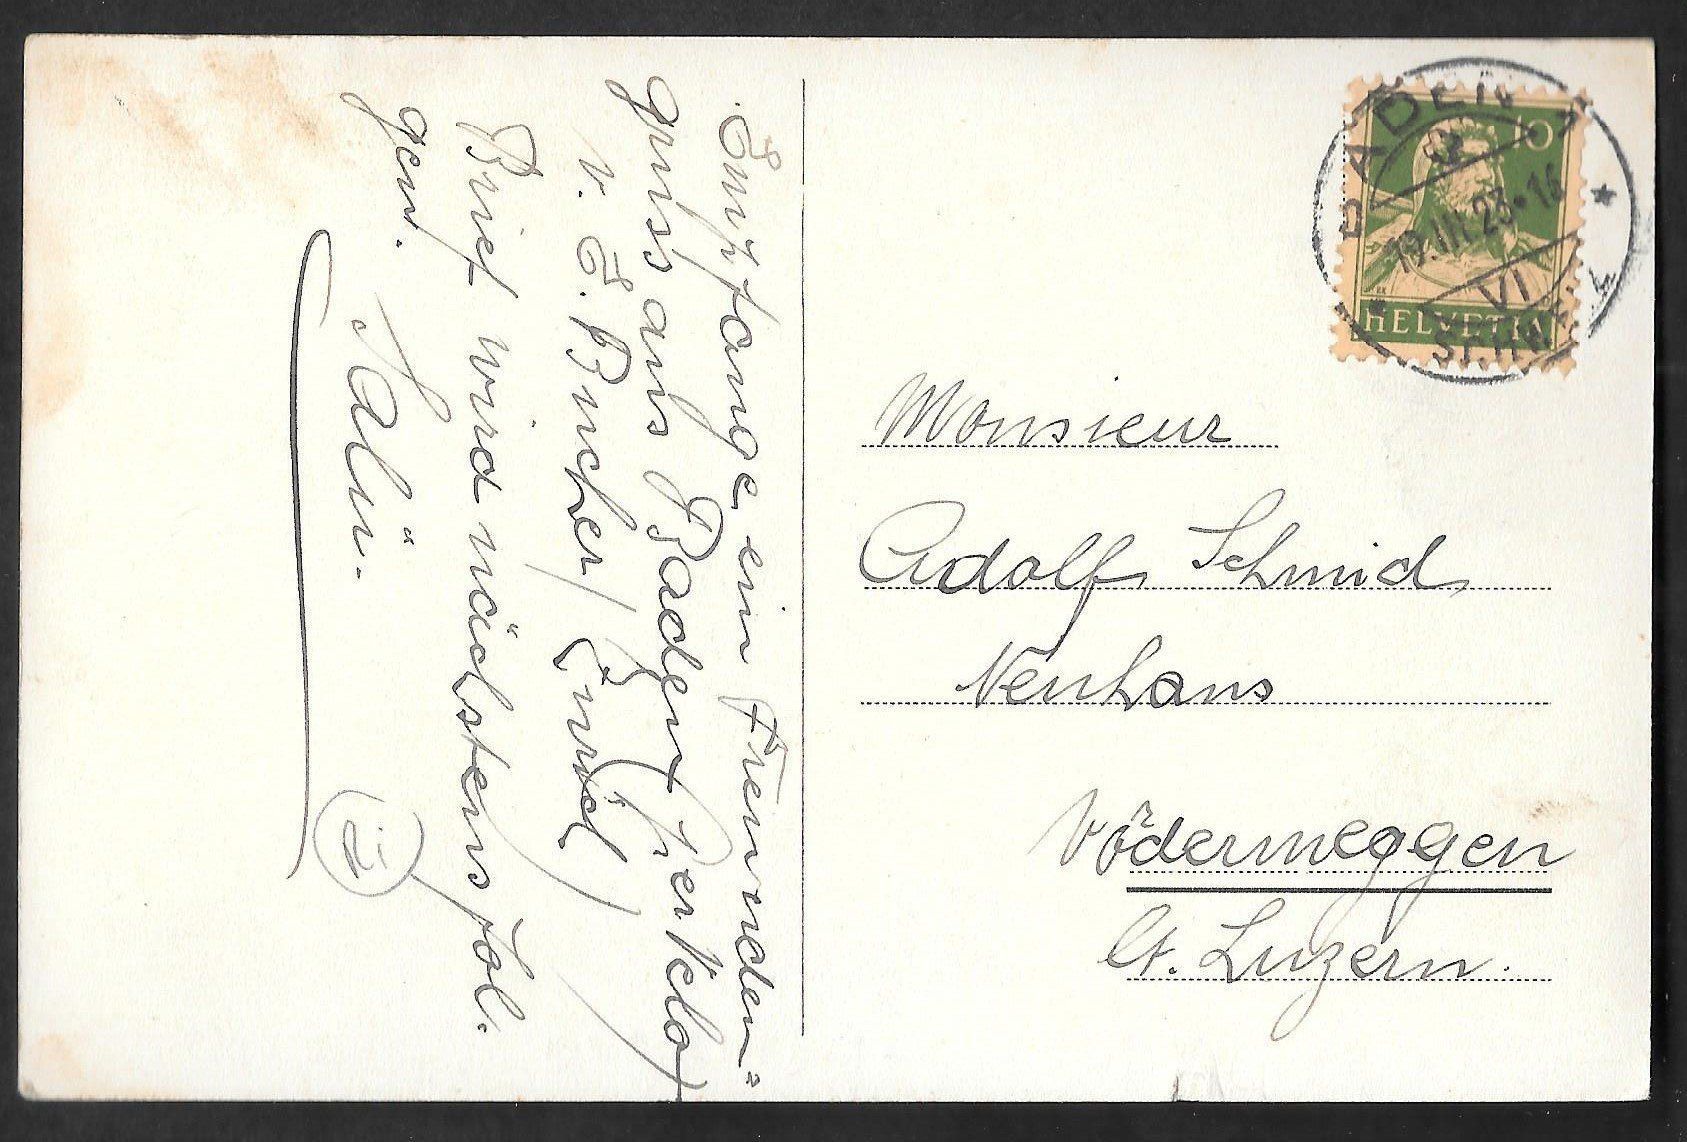 Empfange ein Freunden=
gruss aus Baden per Velo
v. E. Bucher / Emd /
Brief wird nächstens fol.
gen.
Salü.
BADEN
19.III.23.14
VI
10
HELVETIA
Monsieur
Adolf Schmid
Neuhaus
Vödermeggen
Ct. Luzern.